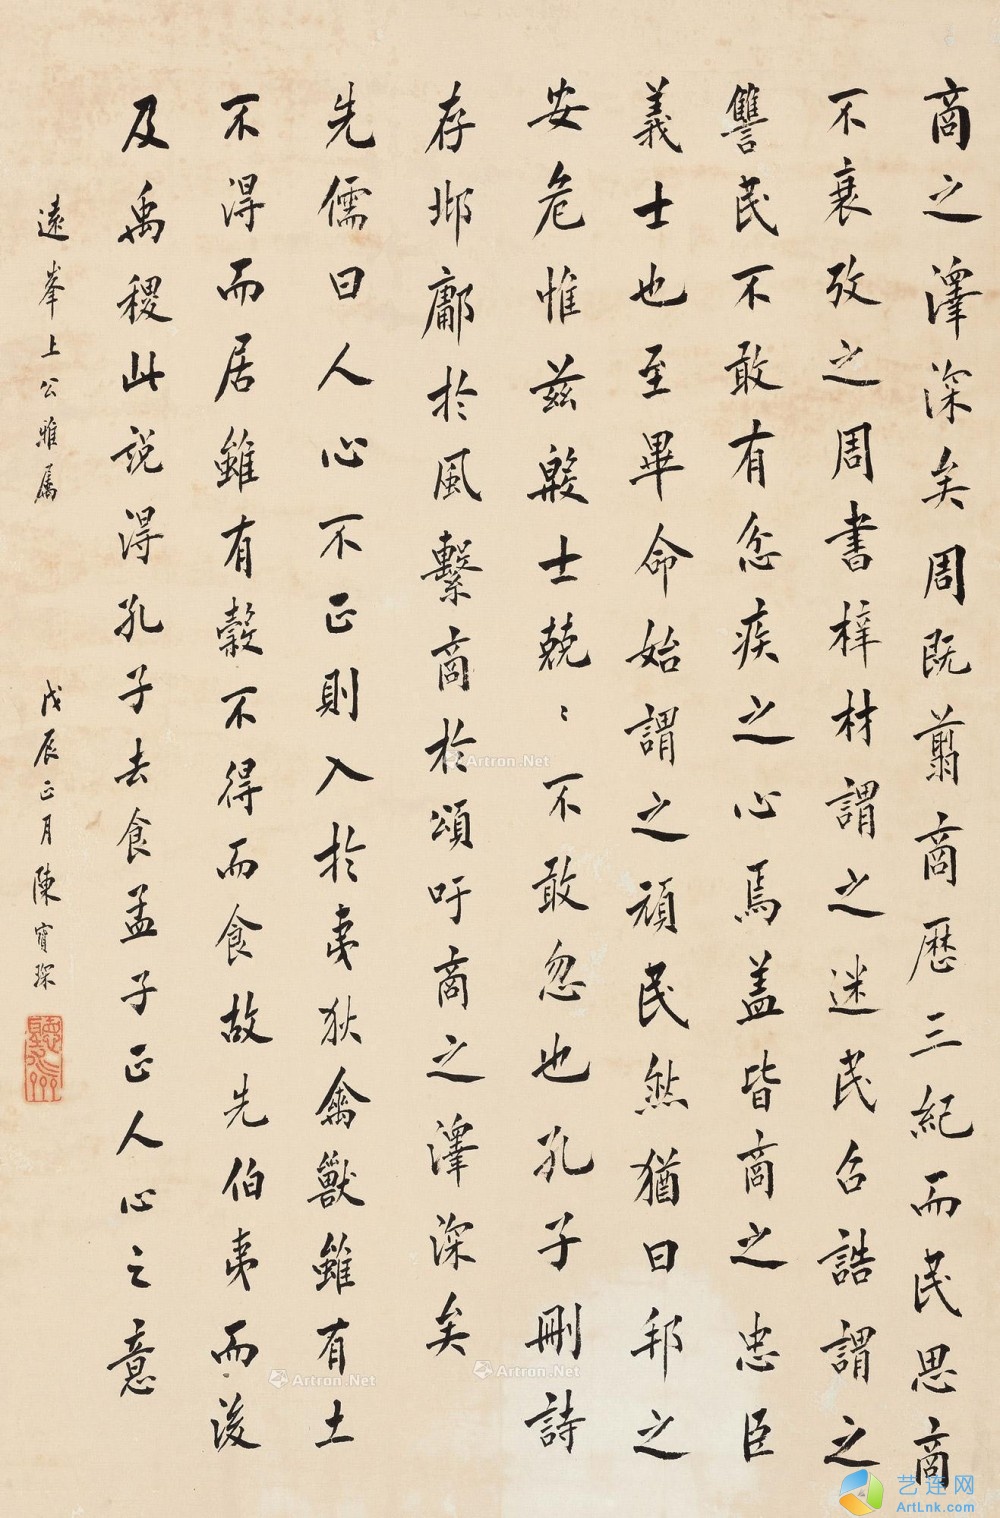 商之澤深矣周既翦商歷三紀而民思商
不衰攷之周書梓材謂之迷民召誥謂之
讐民不敢有忿疾之心焉蓋皆商之忠臣
義士也至畢命始謂之頑民然猶曰邦之
安危惟茲殷士兢〻不敢忽也孔子刪詩
存邶鄘於風繫商於頌吁商之澤深矣
先儒曰人心不正則入於夷狄禽獸雖有土
不得而居雖有穀不得而食故先伯夷而後
及禹稷此說得孔子去食孟子正人心之意
遠峯上公雅屬
戊辰正月陳寶琛
Artron.Net
Artron.Net
Artron.Net
艺连网
ArtLnk.com